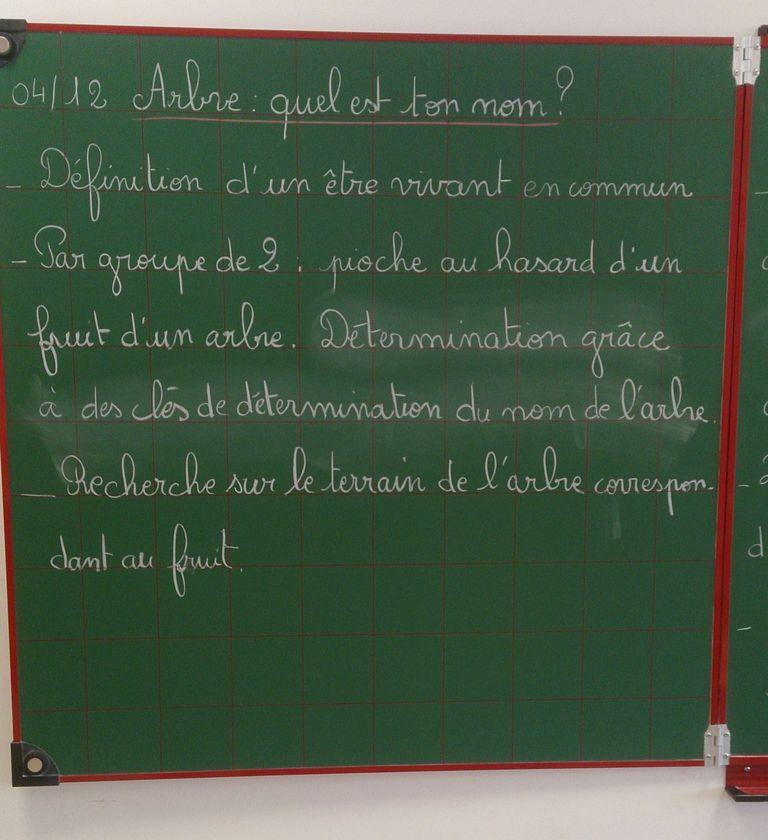 04/12 Arbre : quel est ton nom ?
- Définition d'un être vivant en commun
- Par groupe de 2 : pioche au hasard d'un
fruit d'un arbre. Détermination grâce
à des clés de détermination du nom de l'arbre.
- Recherche sur le terrain de l'arbre correspon-
dant au fruit.